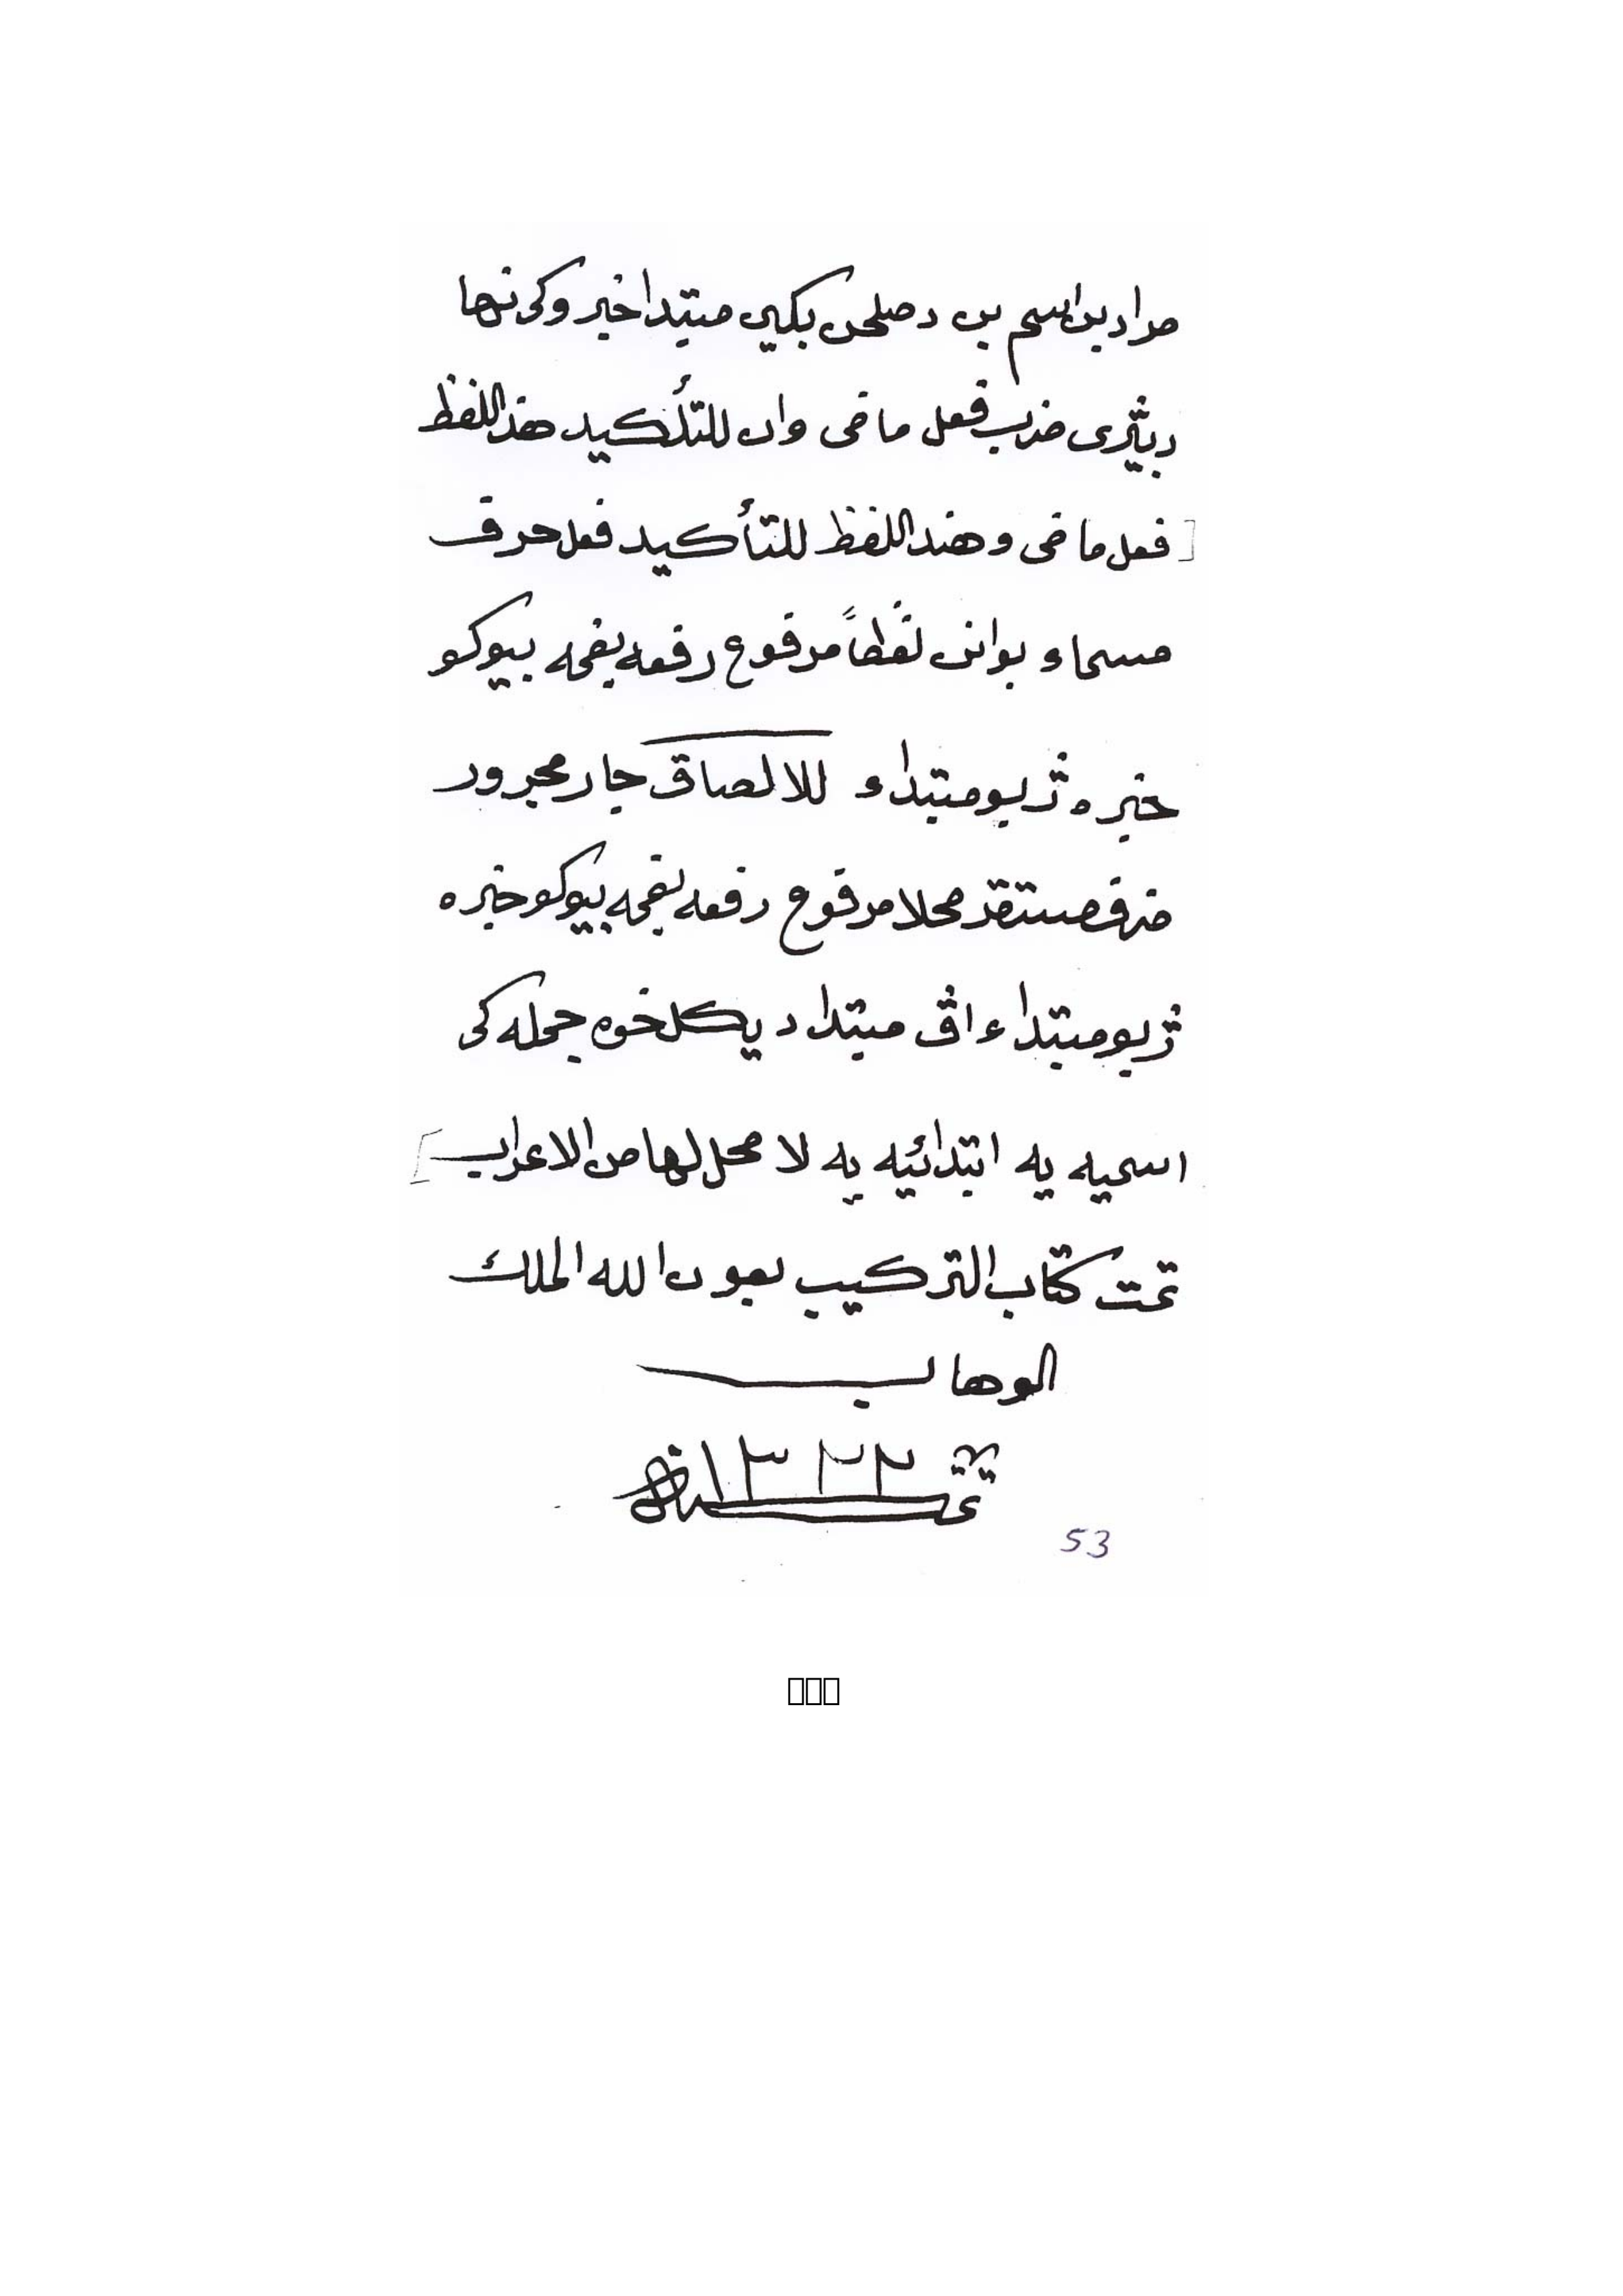 مراد بن اسم بن دصلحن بكين مبتدا خبر وكى نها
دبثرى ضرب فعل ماضى وان للتأكيد هند اللفظ
[فعل ماضى و هند اللفظ للتأكيد فعل حرف
مسماء بوانن لفظاً مرفوع رفعه بضمه بيوكو
خبره ژبو مبتداء للالصاق جار مجرور
ضرف مستقر محلا مرفوع رفعه بضمه بيوكو خبره
ژبو مبتداء اڤ مبتدا ديكل خوه جمله كى
اسميه يه ابتدائيه يه لا محل لها من الاعراب]
تمت كتاب التركيب بعون الله الملك
الوهاب
١٣٢٢
تمت
53